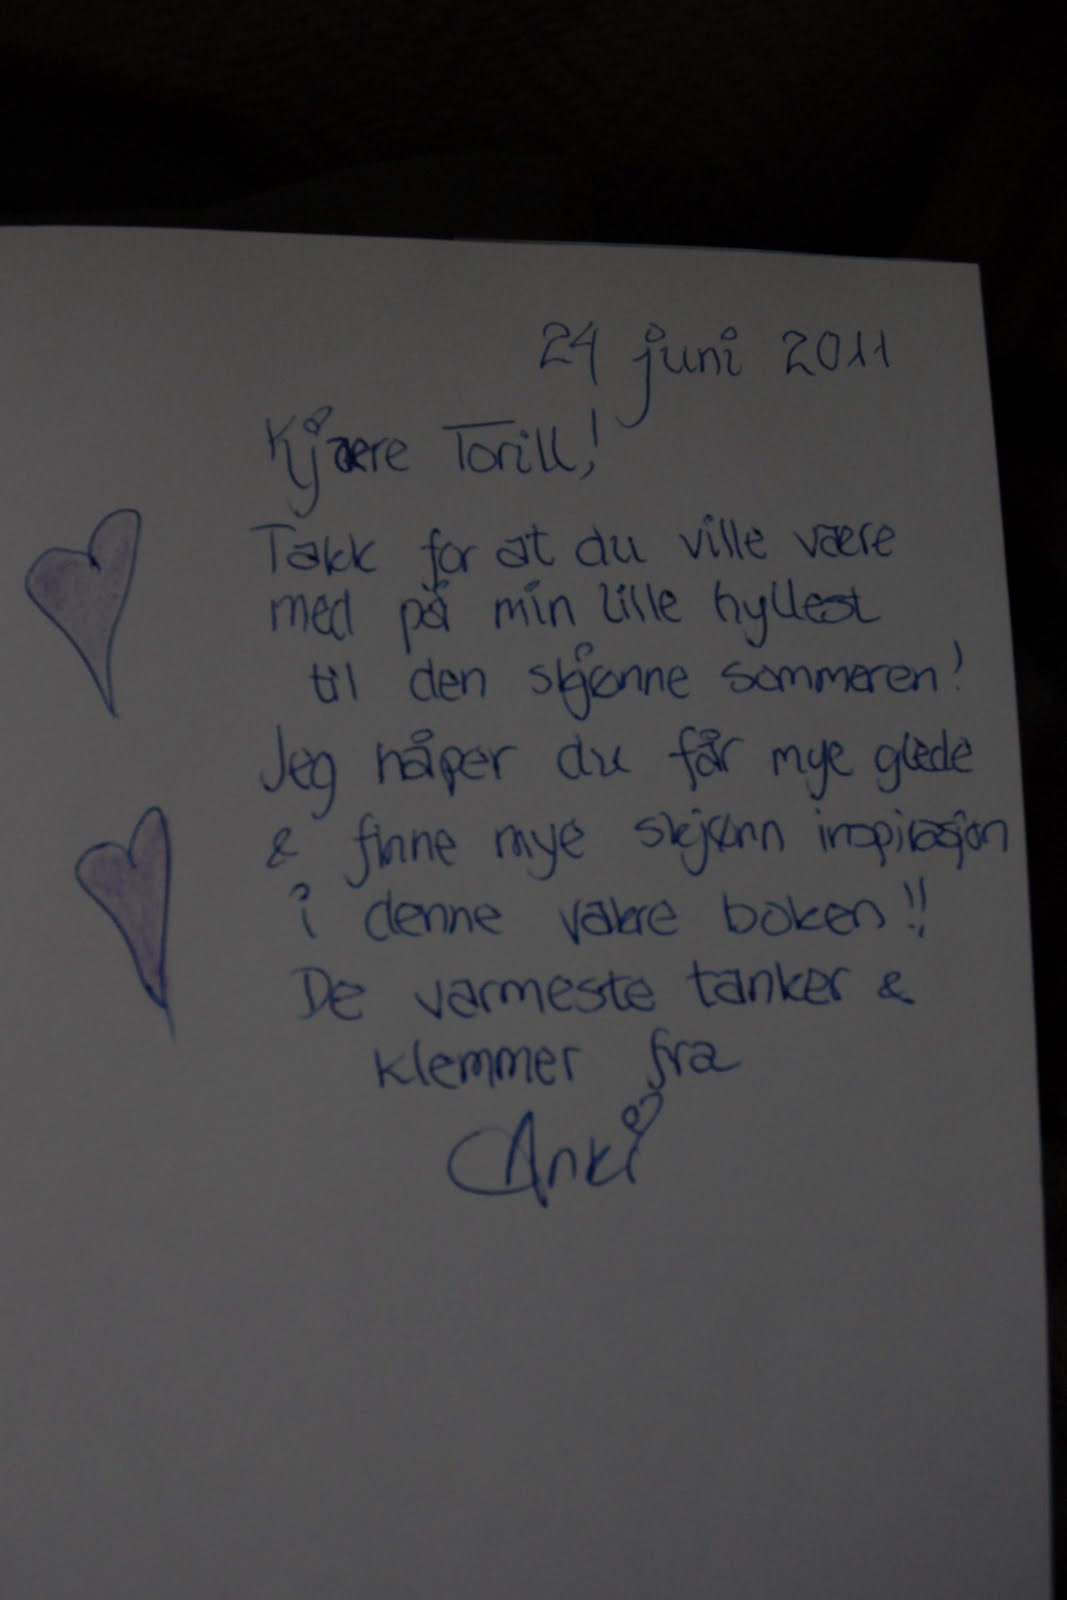 24 juni 2011
Kjære Torill!
Takk for at du ville være
med på min lille hyllest
til den skjønne sommeren!
Jeg håper du får mye glede
& finne mye skjønn inspirasjon
i denne vakre boken!!
De varmeste tanker &
klemmer fra
Anki